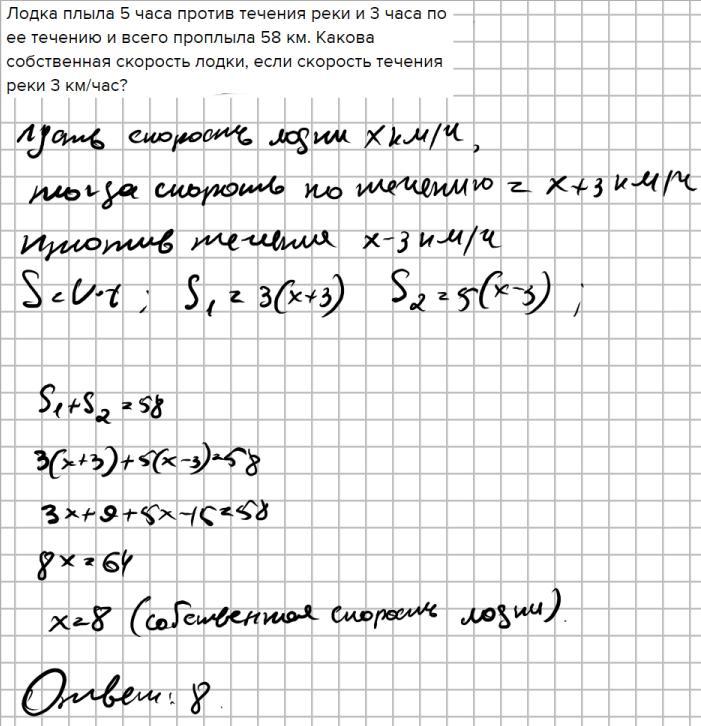 Лодка плыла 5 часа против течения реки и 3 часа по
ее течению и всего проплыла 58 км. Какова
собственная скорость лодки, если скорость течения
реки 3 км/час?
пусть скорость лодки x км/ч,
тогда скорость по течению = x+3 км/ч
против течения x-3 км/ч
S=V·t ; S₁ = 3(x+3) S₂ = 5(x-3) ;
S₁+S₂ = 58
3(x+3)+5(x-3)=58
3x+9+5x-15=58
8x=64
x=8 (собственная скорость лодки).
Ответ: 8.